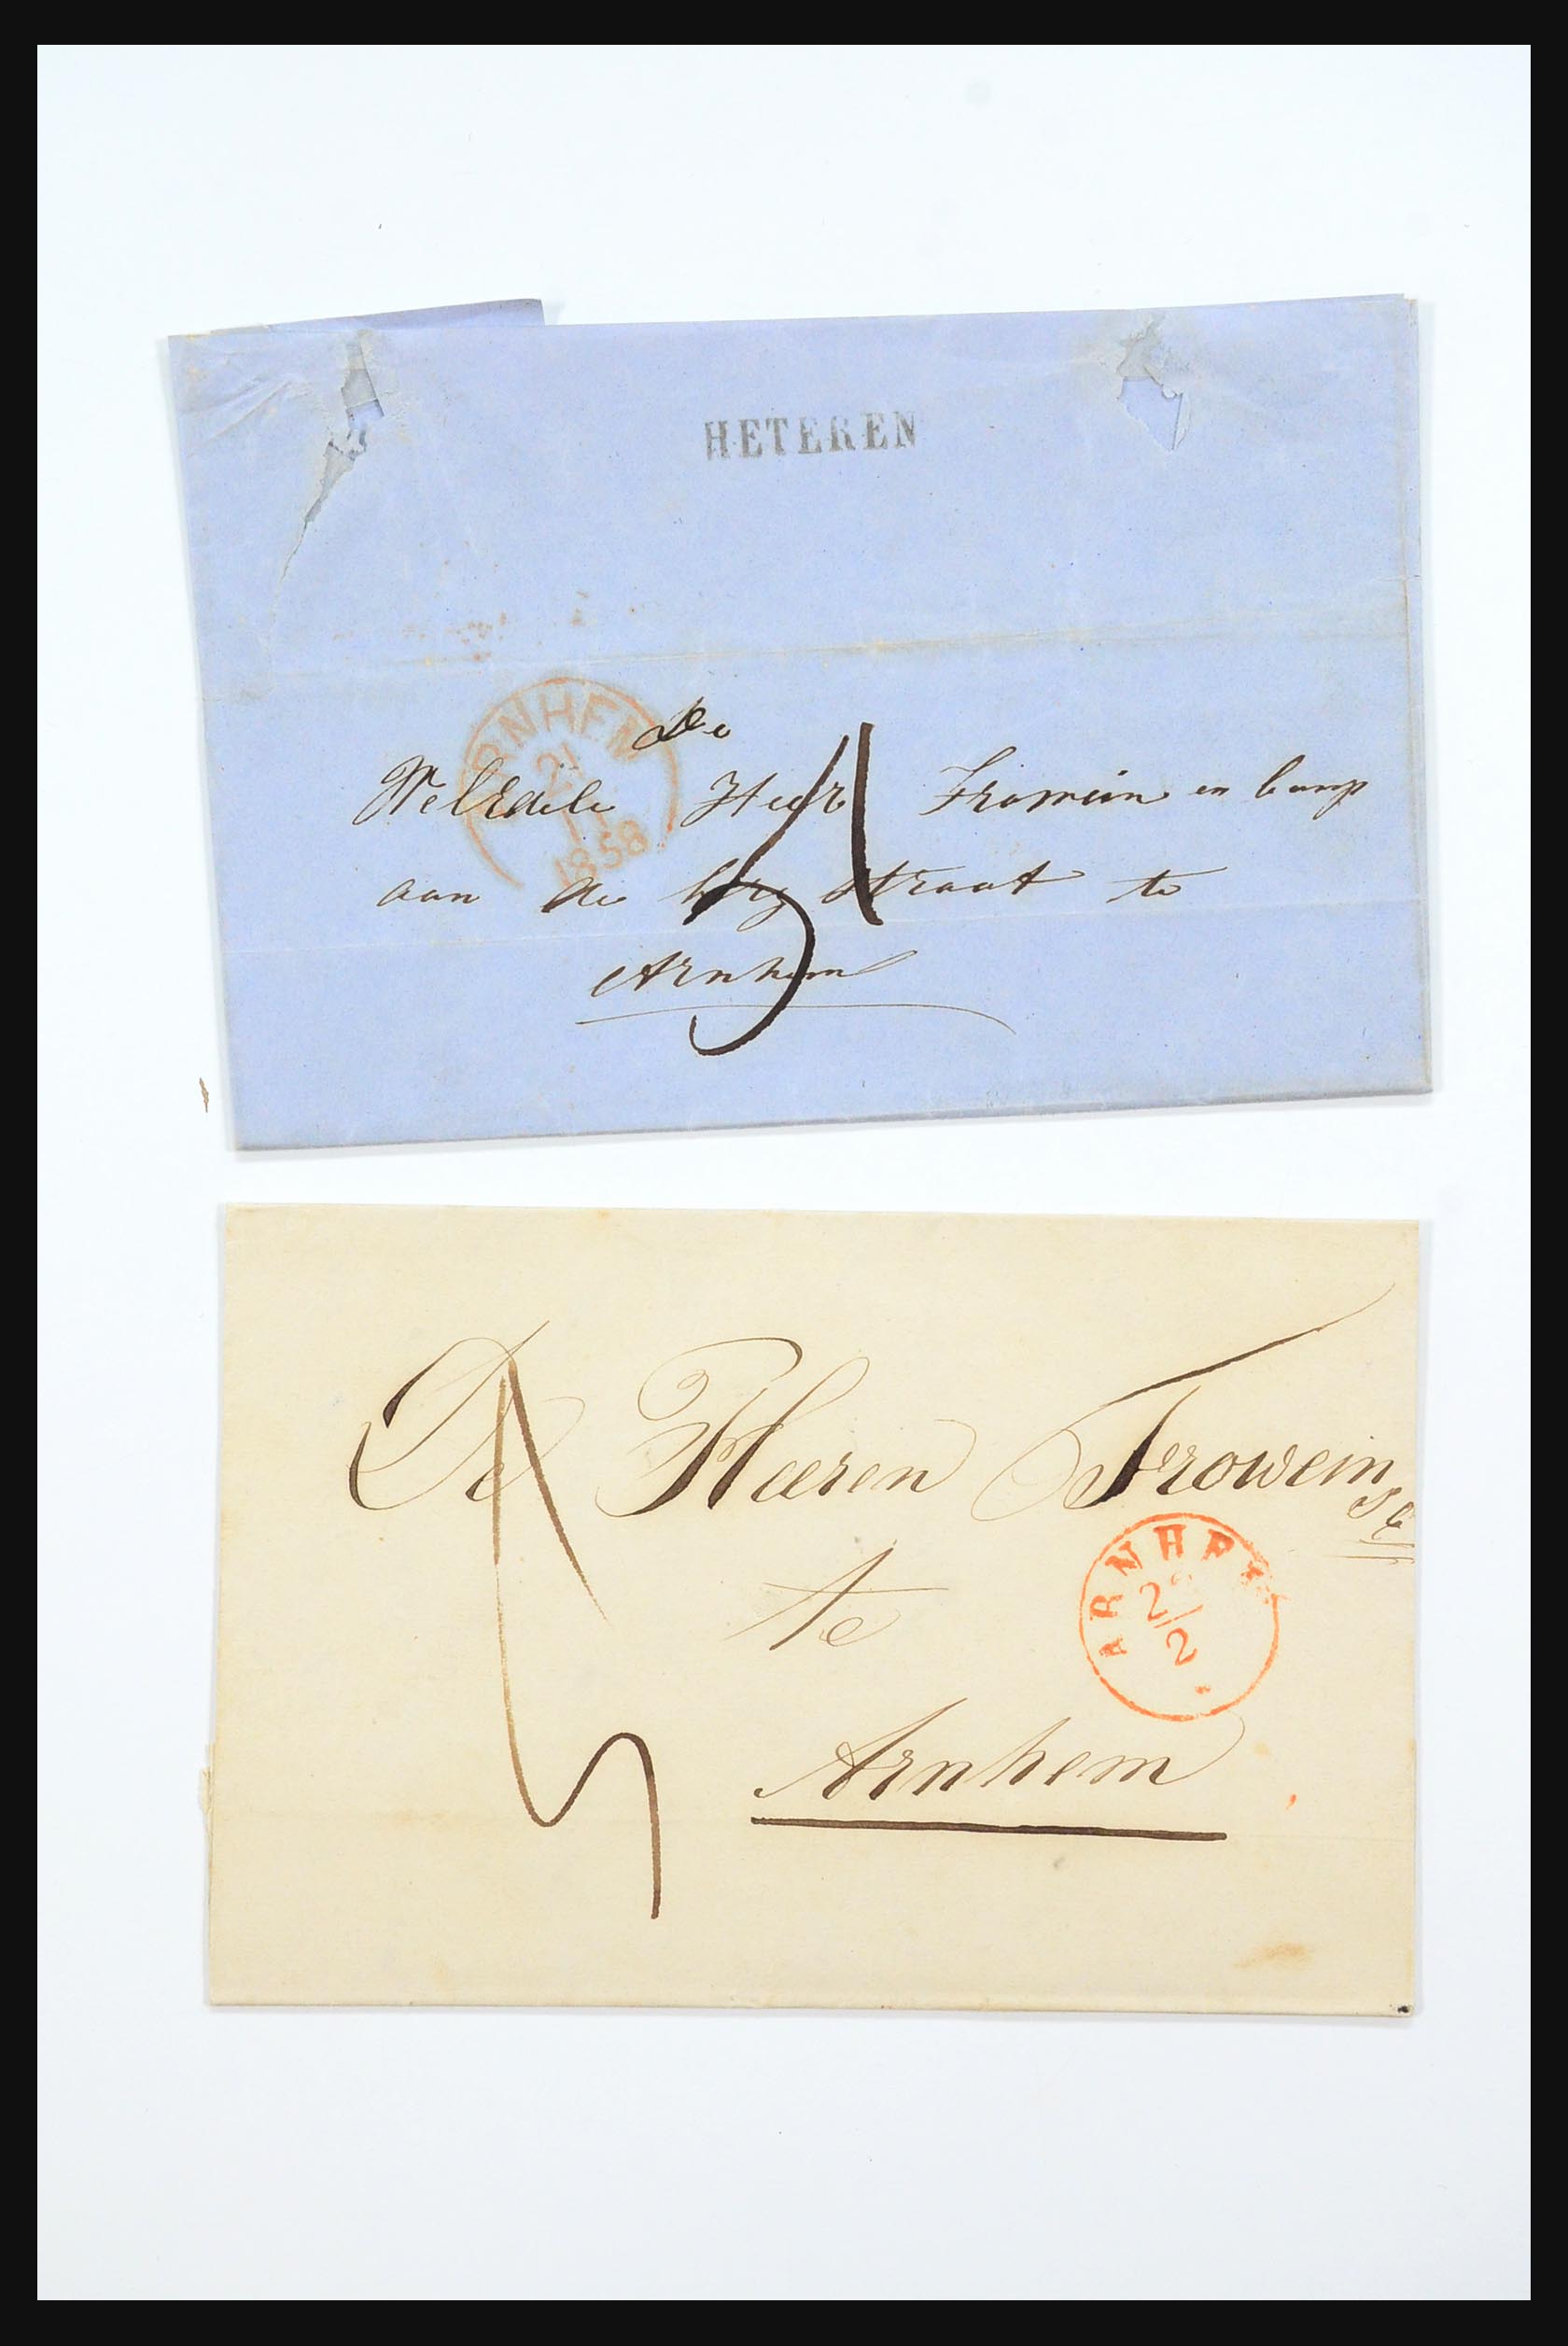 HETEREN
ARNHEM
21
1858
De
WelEdele Heer Fromein en Comp
aan de berg straat te
Arnhem
5
De Heeren Frowein
& C
te
ARNHEM
2/2
Arnhem
5